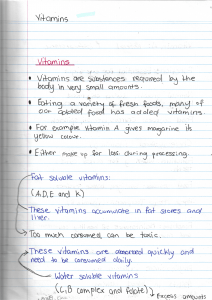 Vitamins
Vitamins
• Vitamins are substances required by the
body in very small amounts.
• Eating a variety of fresh foods, many of
our food has added vitamins.
• For example Vitamin A gives margarine its
yellow colour.
• Either make up for loss during processing.
Fat soluble vitamins:
(A,D,E and K)
These vitamins accumulate in fat stores and
liver.
Too much consumed can be toxic.
These vitamins are absorbed quickly and
need to be consumed daily.
Water soluble vitamins
(C,B complex and folate)
Excess amounts